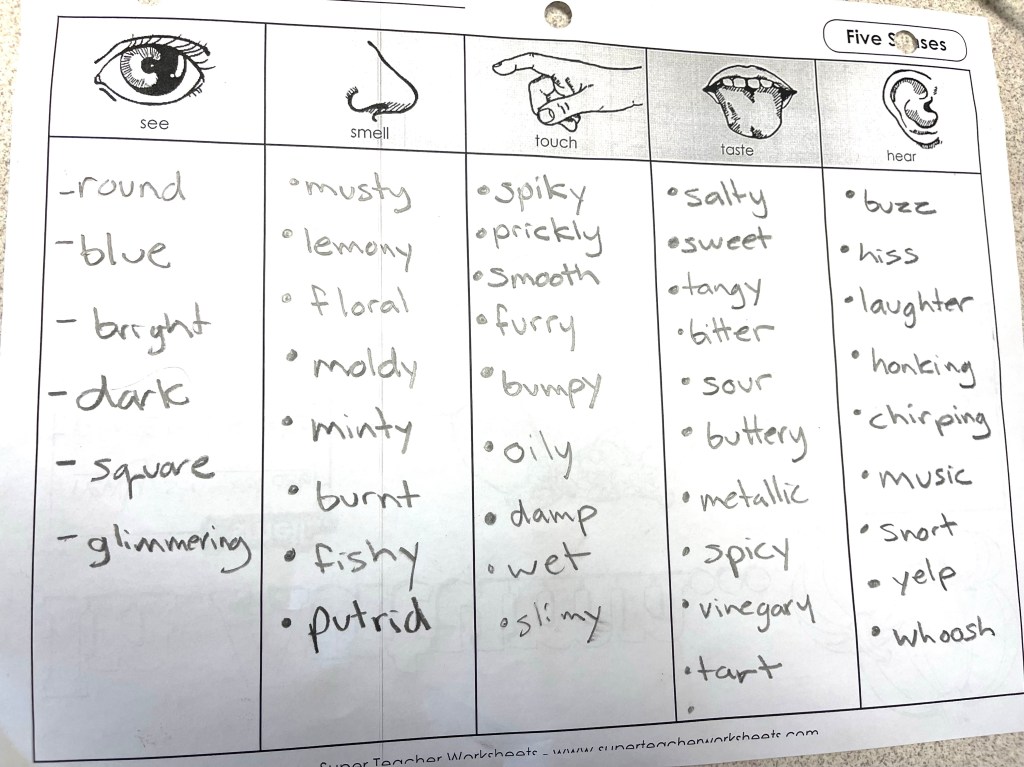 Five Senses
see
round
blue
bright
dark
square
glimmering
smell
musty
lemony
floral
moldy
minty
burnt
fishy
putrid
touch
spiky
prickly
smooth
furry
bumpy
oily
damp
wet
slimy
taste
salty
sweet
tangy
bitter
sour
buttery
metallic
spicy
vinegary
tart
hear
buzz
hiss
laughter
honking
chirping
music
snort
yelp
whoosh
Super Teacher Worksheets - www.superteacherworksheets.com